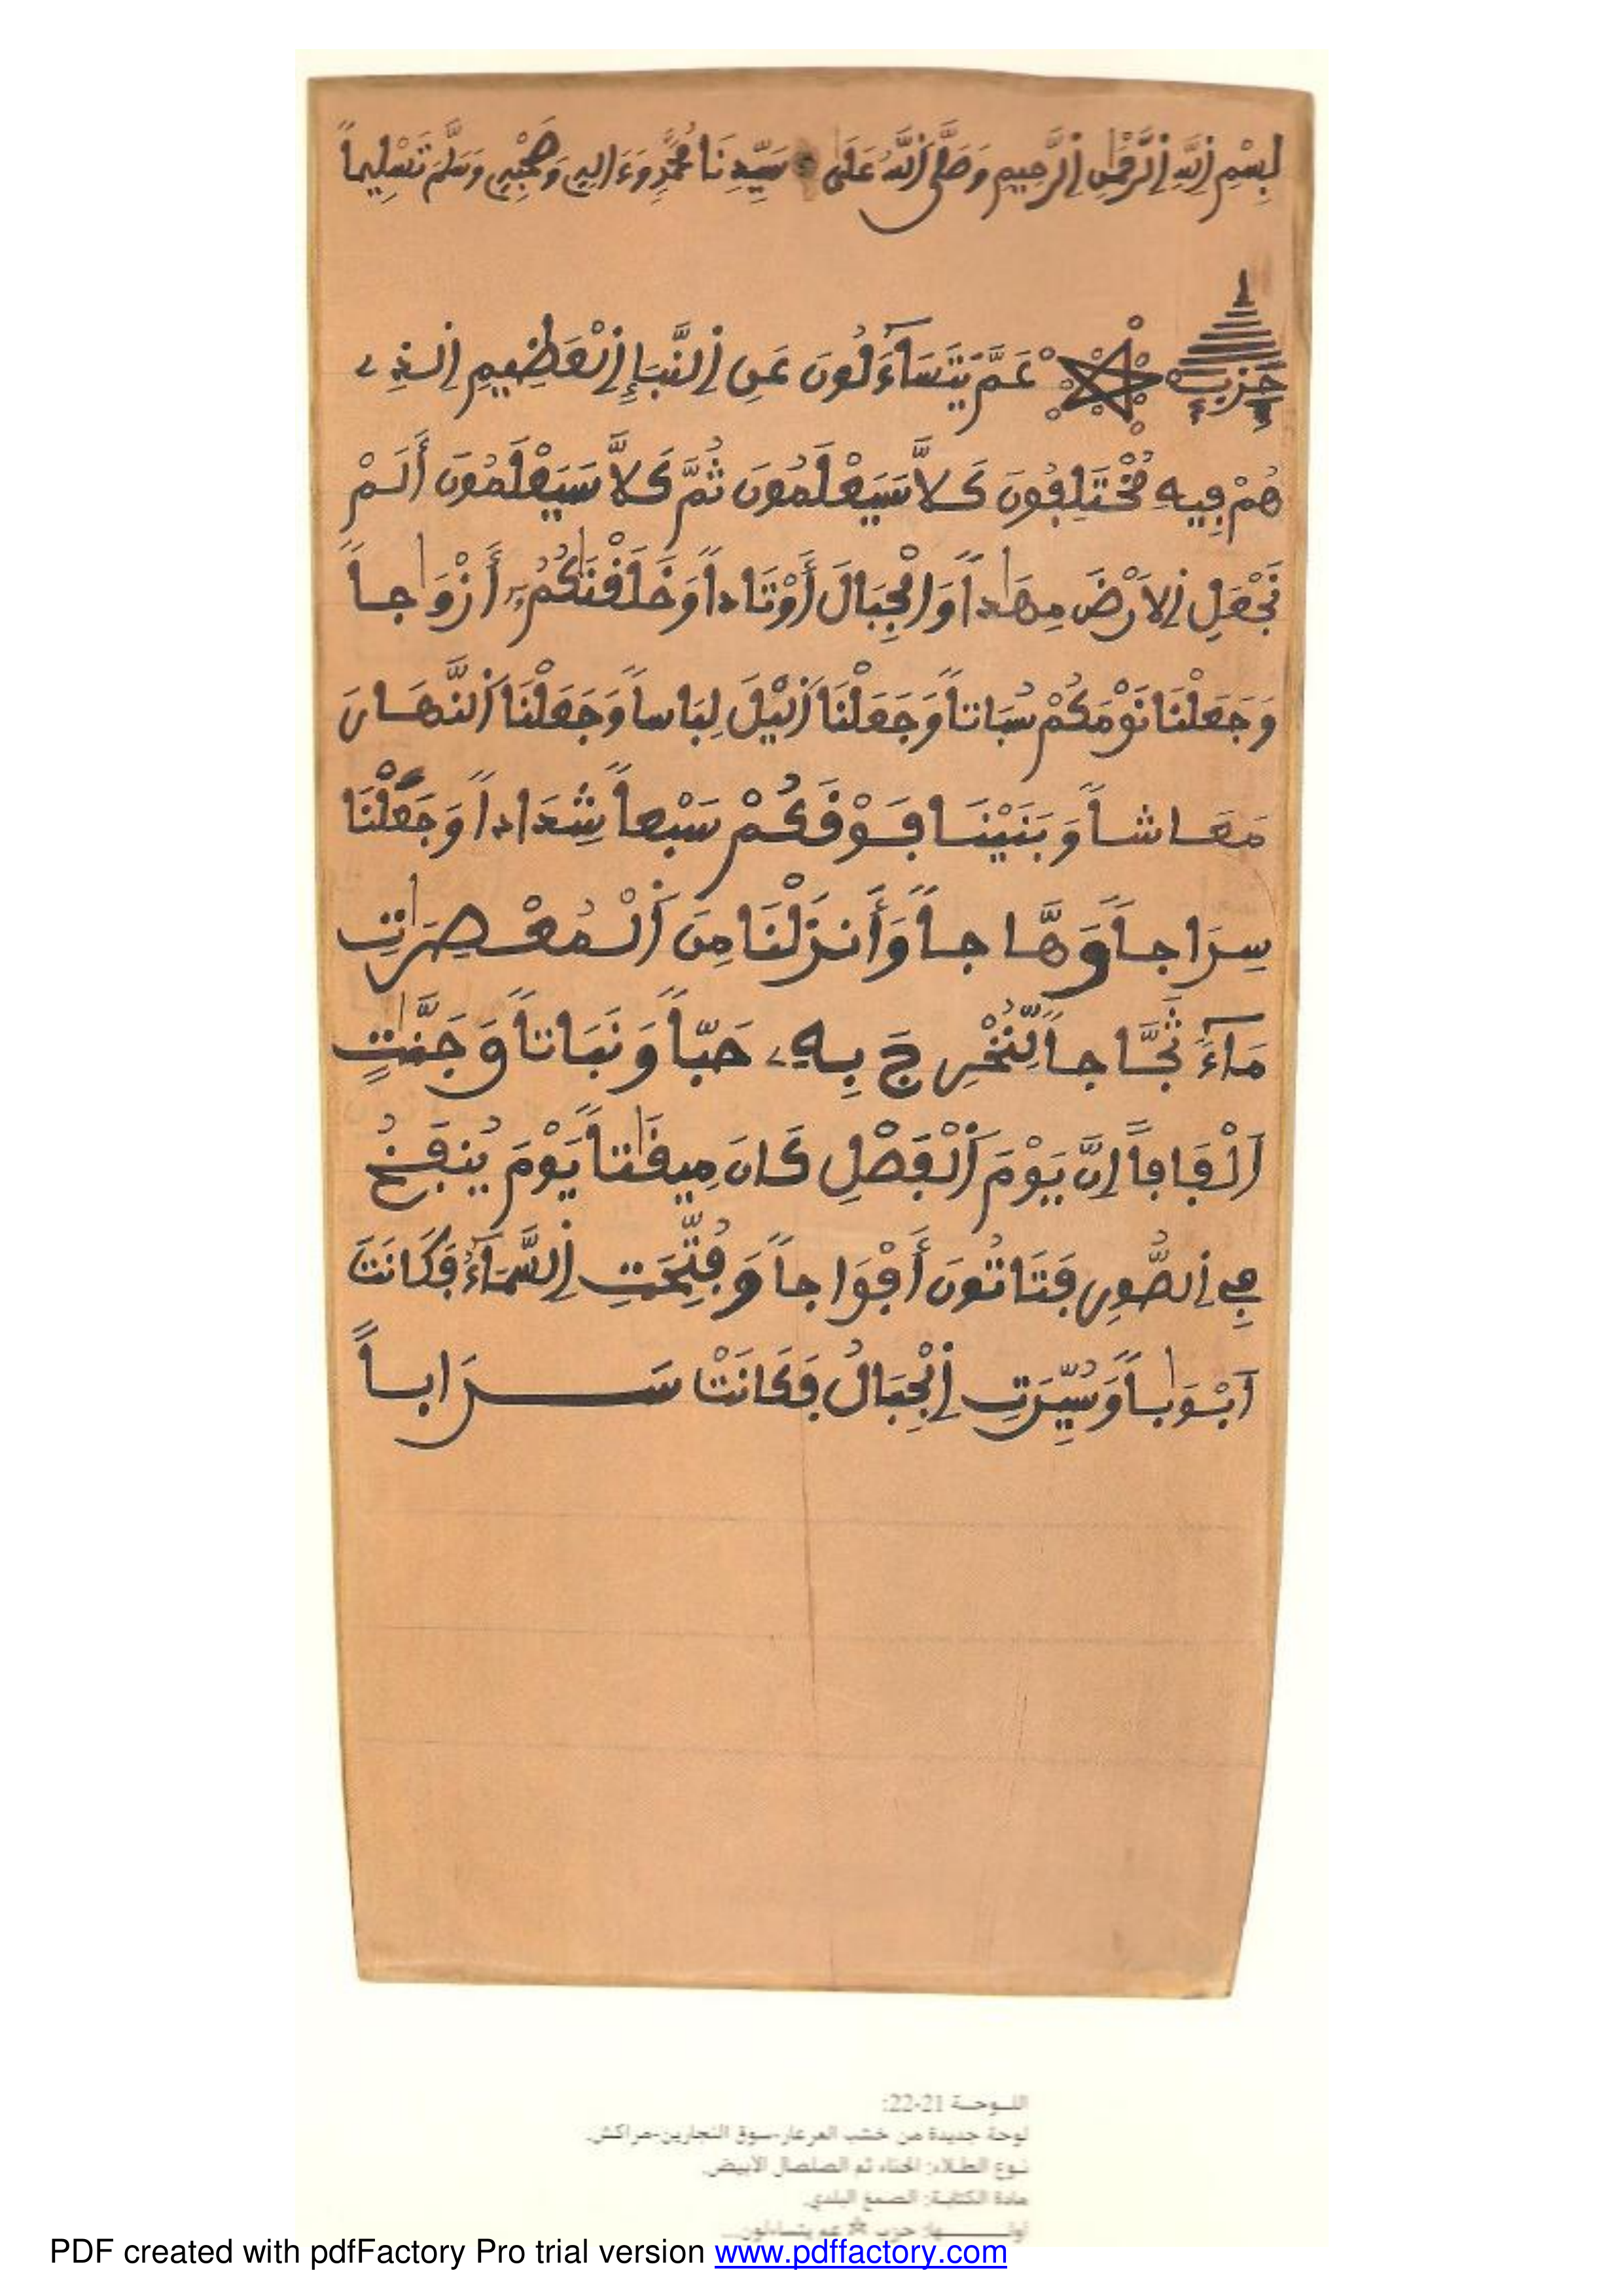 بِسْمِ اِللَّهِ اِلرَّحْمَٰنِ اِلرَّحِيمِ وَصَلَّى اَللَّهُ عَلَى سَيِّدِنَا مُحَمَّدٍ وَءَالِهِ وَصَحْبِهِ وَسَلَّمَ تَسْلِيماً
حِزْبٌ عَمَّ يَتَسَآءَلُونَ عَنِ اِلنَّبَإِ اِلْعَظِيمِ اِلذِے
هُمْ ڢِيهِ مُخْتَلِڢُونَ كَلاَّ سَيَعْلَمُونَ ثُمَّ كَلاَّ سَيَعْلَمُونَ أَلَمْ
نَجْعَلِ اِلَارْضَ مِهَٰداً وَالْجِبَالَ أَوْتَاداً وَخَلَڧْنَٰكُمُۥٓ أَزْوَٰجاً
وَجَعَلْنَا نَوْمَكُمْ سُبَاتاً وَجَعَلْنَا اَليْلَ لِبَاساً وَجَعَلْنَا اَلنَّهَارَ
مَعَاشاً وَبَنَيْنَا ڢَوْڧَكُمْ سَبْعاً شِدَاداً وَجَعَلْنَا
سِرَاجاً وَهَّاجاً وَأَنزَلْنَا مِنَ اَلْمُعْصِرَٰتِ
مَآءً ثَجَّاجاً لِّنُخْرِجَ بِهِۦ حَبّاً وَنَبَاتاً وَجَنَّٰتٍ
اَلْڢَاڢاً اِنَّ يَوْمَ اَلْڢَصْلِ كَانَ مِيڧَٰتاً يَوْمَ يُنڢَخُ
ڢِے اِلصُّورِ ڢَتَاتُونَ أَڢْوَاجاً وَڢُتِّحَتِ اِلسَّمَآءُ ڢَكَانَتَ
اَبْوَٰباً وَسُيِّرَتِ اِلْجِبَالُ ڢَكَانَتْ سَرَاباً
اللوحة 21-22:
لوحة جديدة من خشب العرعار-سوق النجارين-مراكش.
نوع الطلاء: الحناء ثم الصلصال الأبيض.
مادة الكتابة: الصمغ البلدي.
أولها: حزب عم يتساءلون...
PDF created with pdfFactory Pro trial version www.pdffactory.com